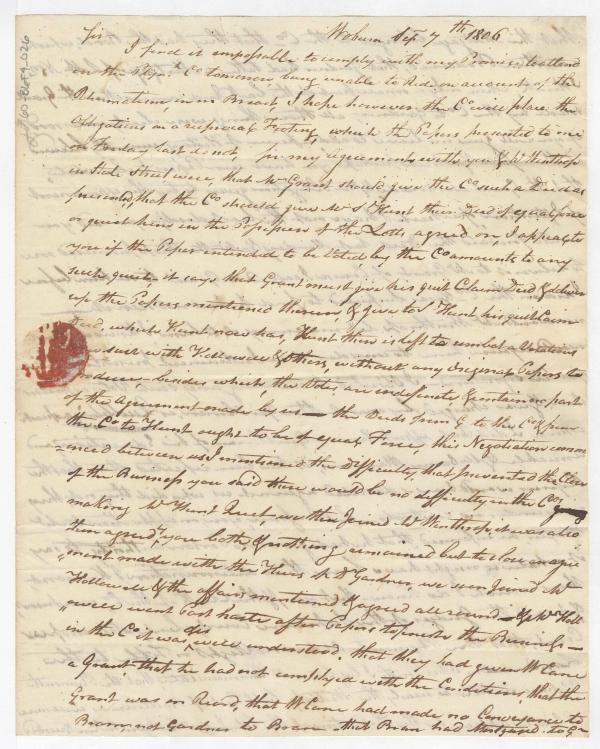 60-CL.F9-026
Woburn Sep 7th 1806
Sir
I find it impossable to comply with my Promise, to attend
on the Co tomorrow being unable to Ride on account of the
Rhumatism in my Breast, I hope however the Co will place the
Obligations on a reciprocal Footing, which the Papers presented to me
on Friday last do not, for my agreements with you & Mr Winthrop
in State Street were that Mr Grant should give the Co such a Deed as
presented, that the Co should give Mr S Hunt their Deed of equal force
or quiet him in the Possession of the Lotts agreed on, I appeal to
you if the Paper intended to be Voted by the Co amounts to any
such quiet, it says that Grant must give his quit Claim Deed, & deliver
up the Papers mentioned therein & give to S Hunt his quit Claim
Deed, which Hunt now has, Hunt then is left to combat a Vexatious
Law suit with Hallowell & others, without any Original Papers to
produce, besides which, the Votes are indefinite & contain no part
of the Agreement made by us — the Deeds from G to the Co & from
the Co to Hunt ought to be of equal Force, this Negotiation comm
=enced between us I mentioned the Difficulty, that prevented the Close
of the Business you said there would be no difficulty in the Cos
making Mr Hunt Quiet, we then Joined Mr Winthrop, it was also
then agreed, by you both, & nothing remained but to close an agree
"ment made with the Heirs of D Gardner, we soon Joined Mr
Hallowell & the affairs mentioned & agreed all round — & Mr Hall
"owell went Post haste after Papers to finish the Business —
in the Co it was well understood that they had given W Lane
a Grant that he had not complyed with the Conditions, that the
Grant was on Record, that W Lane had made no Conveyance to
Bran, not Gardner to Bran that Bran had Mortgaged to G